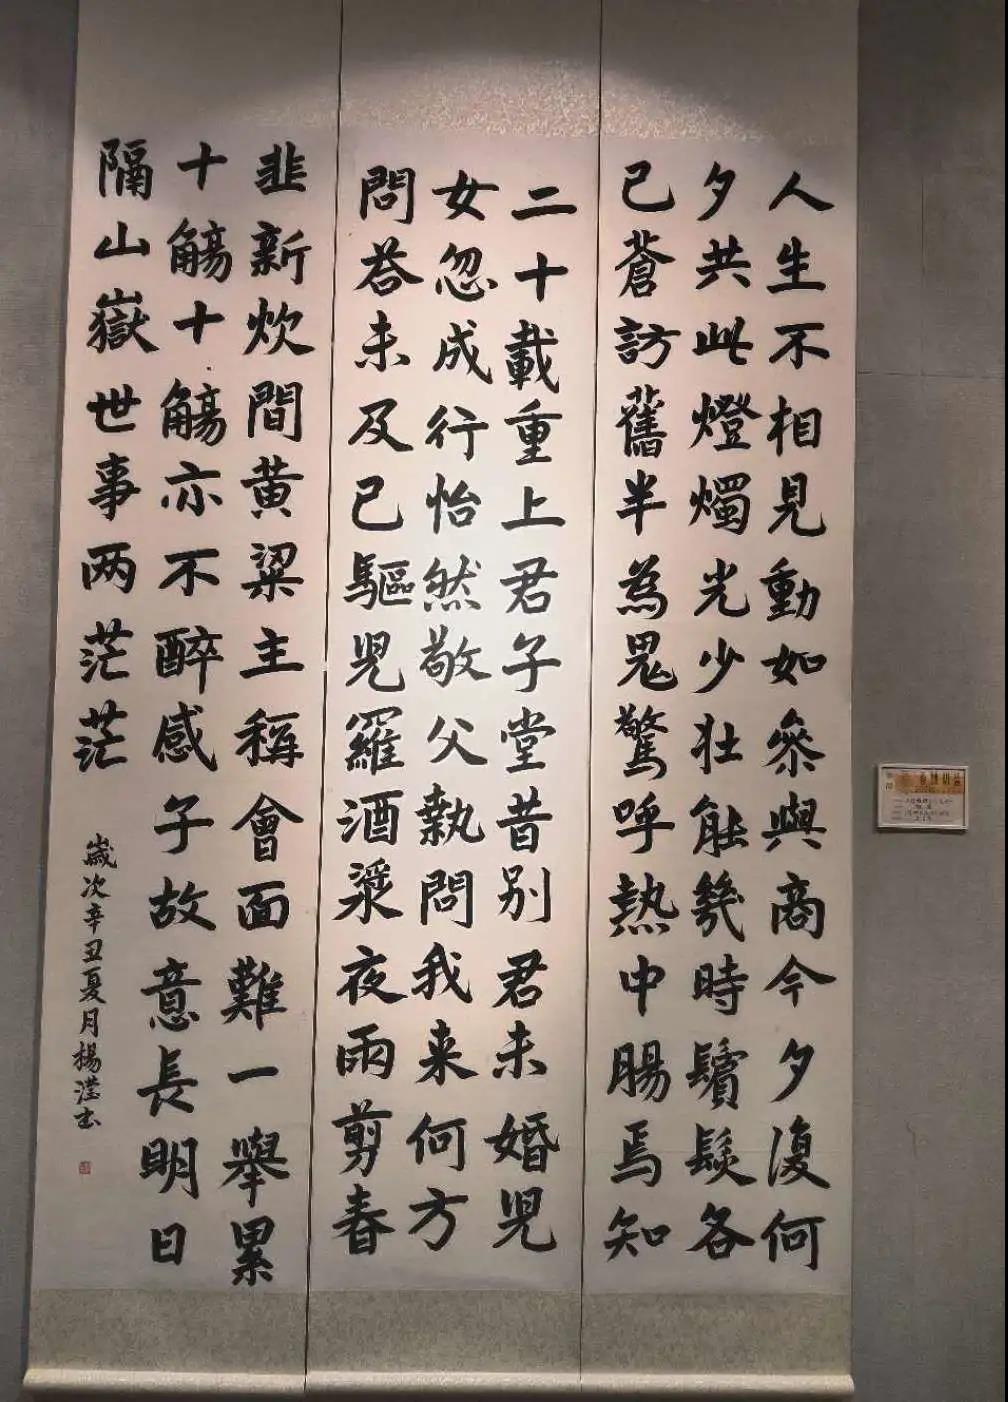 人生不相見動如參與商今夕復何
夕共此燈燭光少壯能幾時鬢髮各
已蒼訪舊半為鬼驚呼熱中腸焉知
二十載重上君子堂昔別君未婚兒
女忽成行怡然敬父執問我来何方
問荅未及已驅兒羅酒漿夜雨剪春
韭新炊間黄粱主稱會面難一舉累
十觴十觴亦不醉感子故意長明日
隔山嶽世事两茫茫
歲次辛丑夏月楊滢书